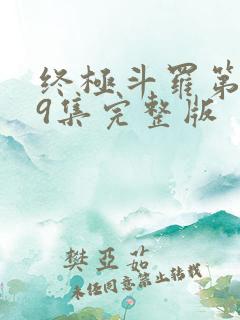 终极斗罗第
9集完整版
樊亚茹
未经同意禁止转载